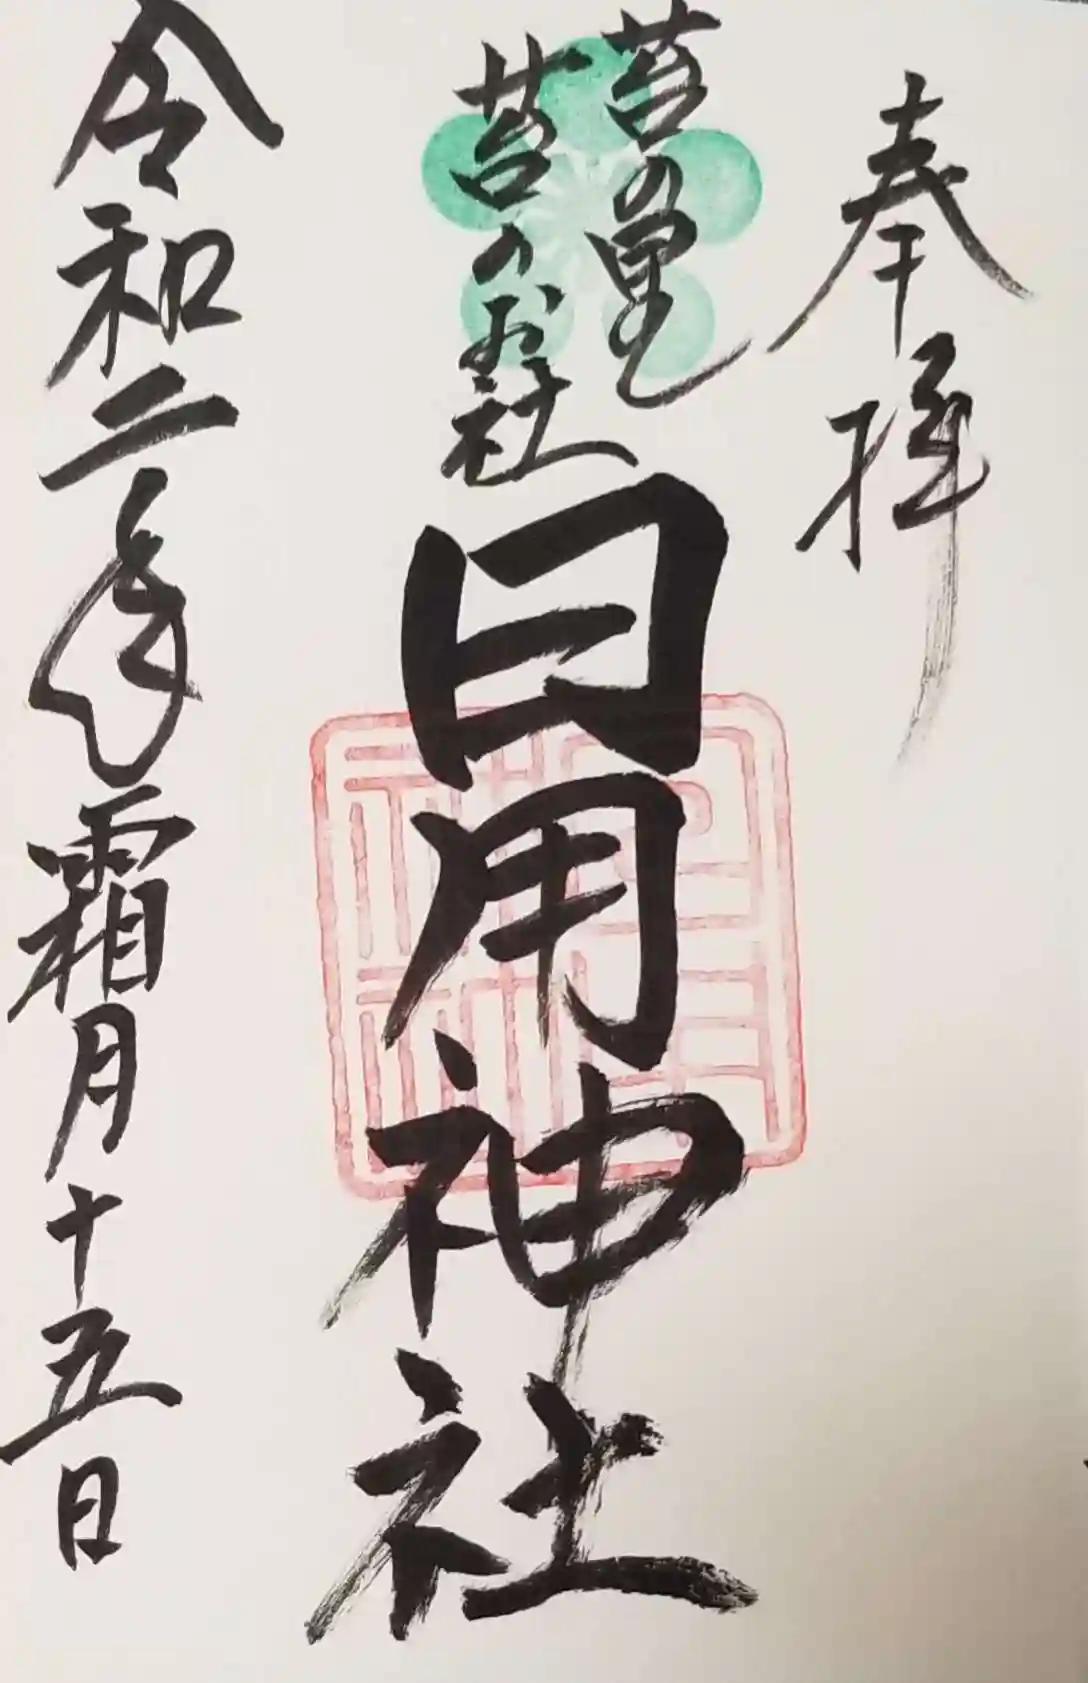 奉拝
苔の里
苔のお社
日用神社
令和二年霜月十五日